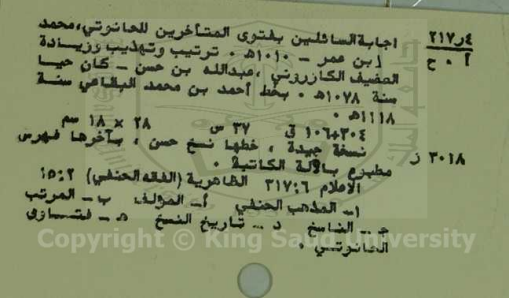 ٢١٧٫٤ اجابة السائلين بفتوى المتأخرين للحانوتي، محمد
أ ٠ ح ابن عمر - ١٠١٠هـ ٠ ترتيب وتهذيب وزيادة
الضيف الكازروني، عبدالله بن حسن - كان حيا
سنة ١٠٧٨هـ ٠ بخط أحمد بن محمد البقاعي سنة
١١١٨هـ ٠
٣٠٤+١٠٦ ق ٣٧ س ٢٨ × ١٨ سم
٣٠١٨ ز نسخة جيدة ، خطها نسخ حسن ، بآخرها فهرس
مطبوع بالآلة الكاتبة ٠
الاعلام ٣١٧:٦ الظاهرية (الفقه الحنفي) ١٥:٢
١- المذهب الحنفي أ- المؤلف ب - المرتب
ج - الناسخ د - تاريخ النسخ هـ - فتاوى
الحانوتي ٠
Copyright © King Saud University